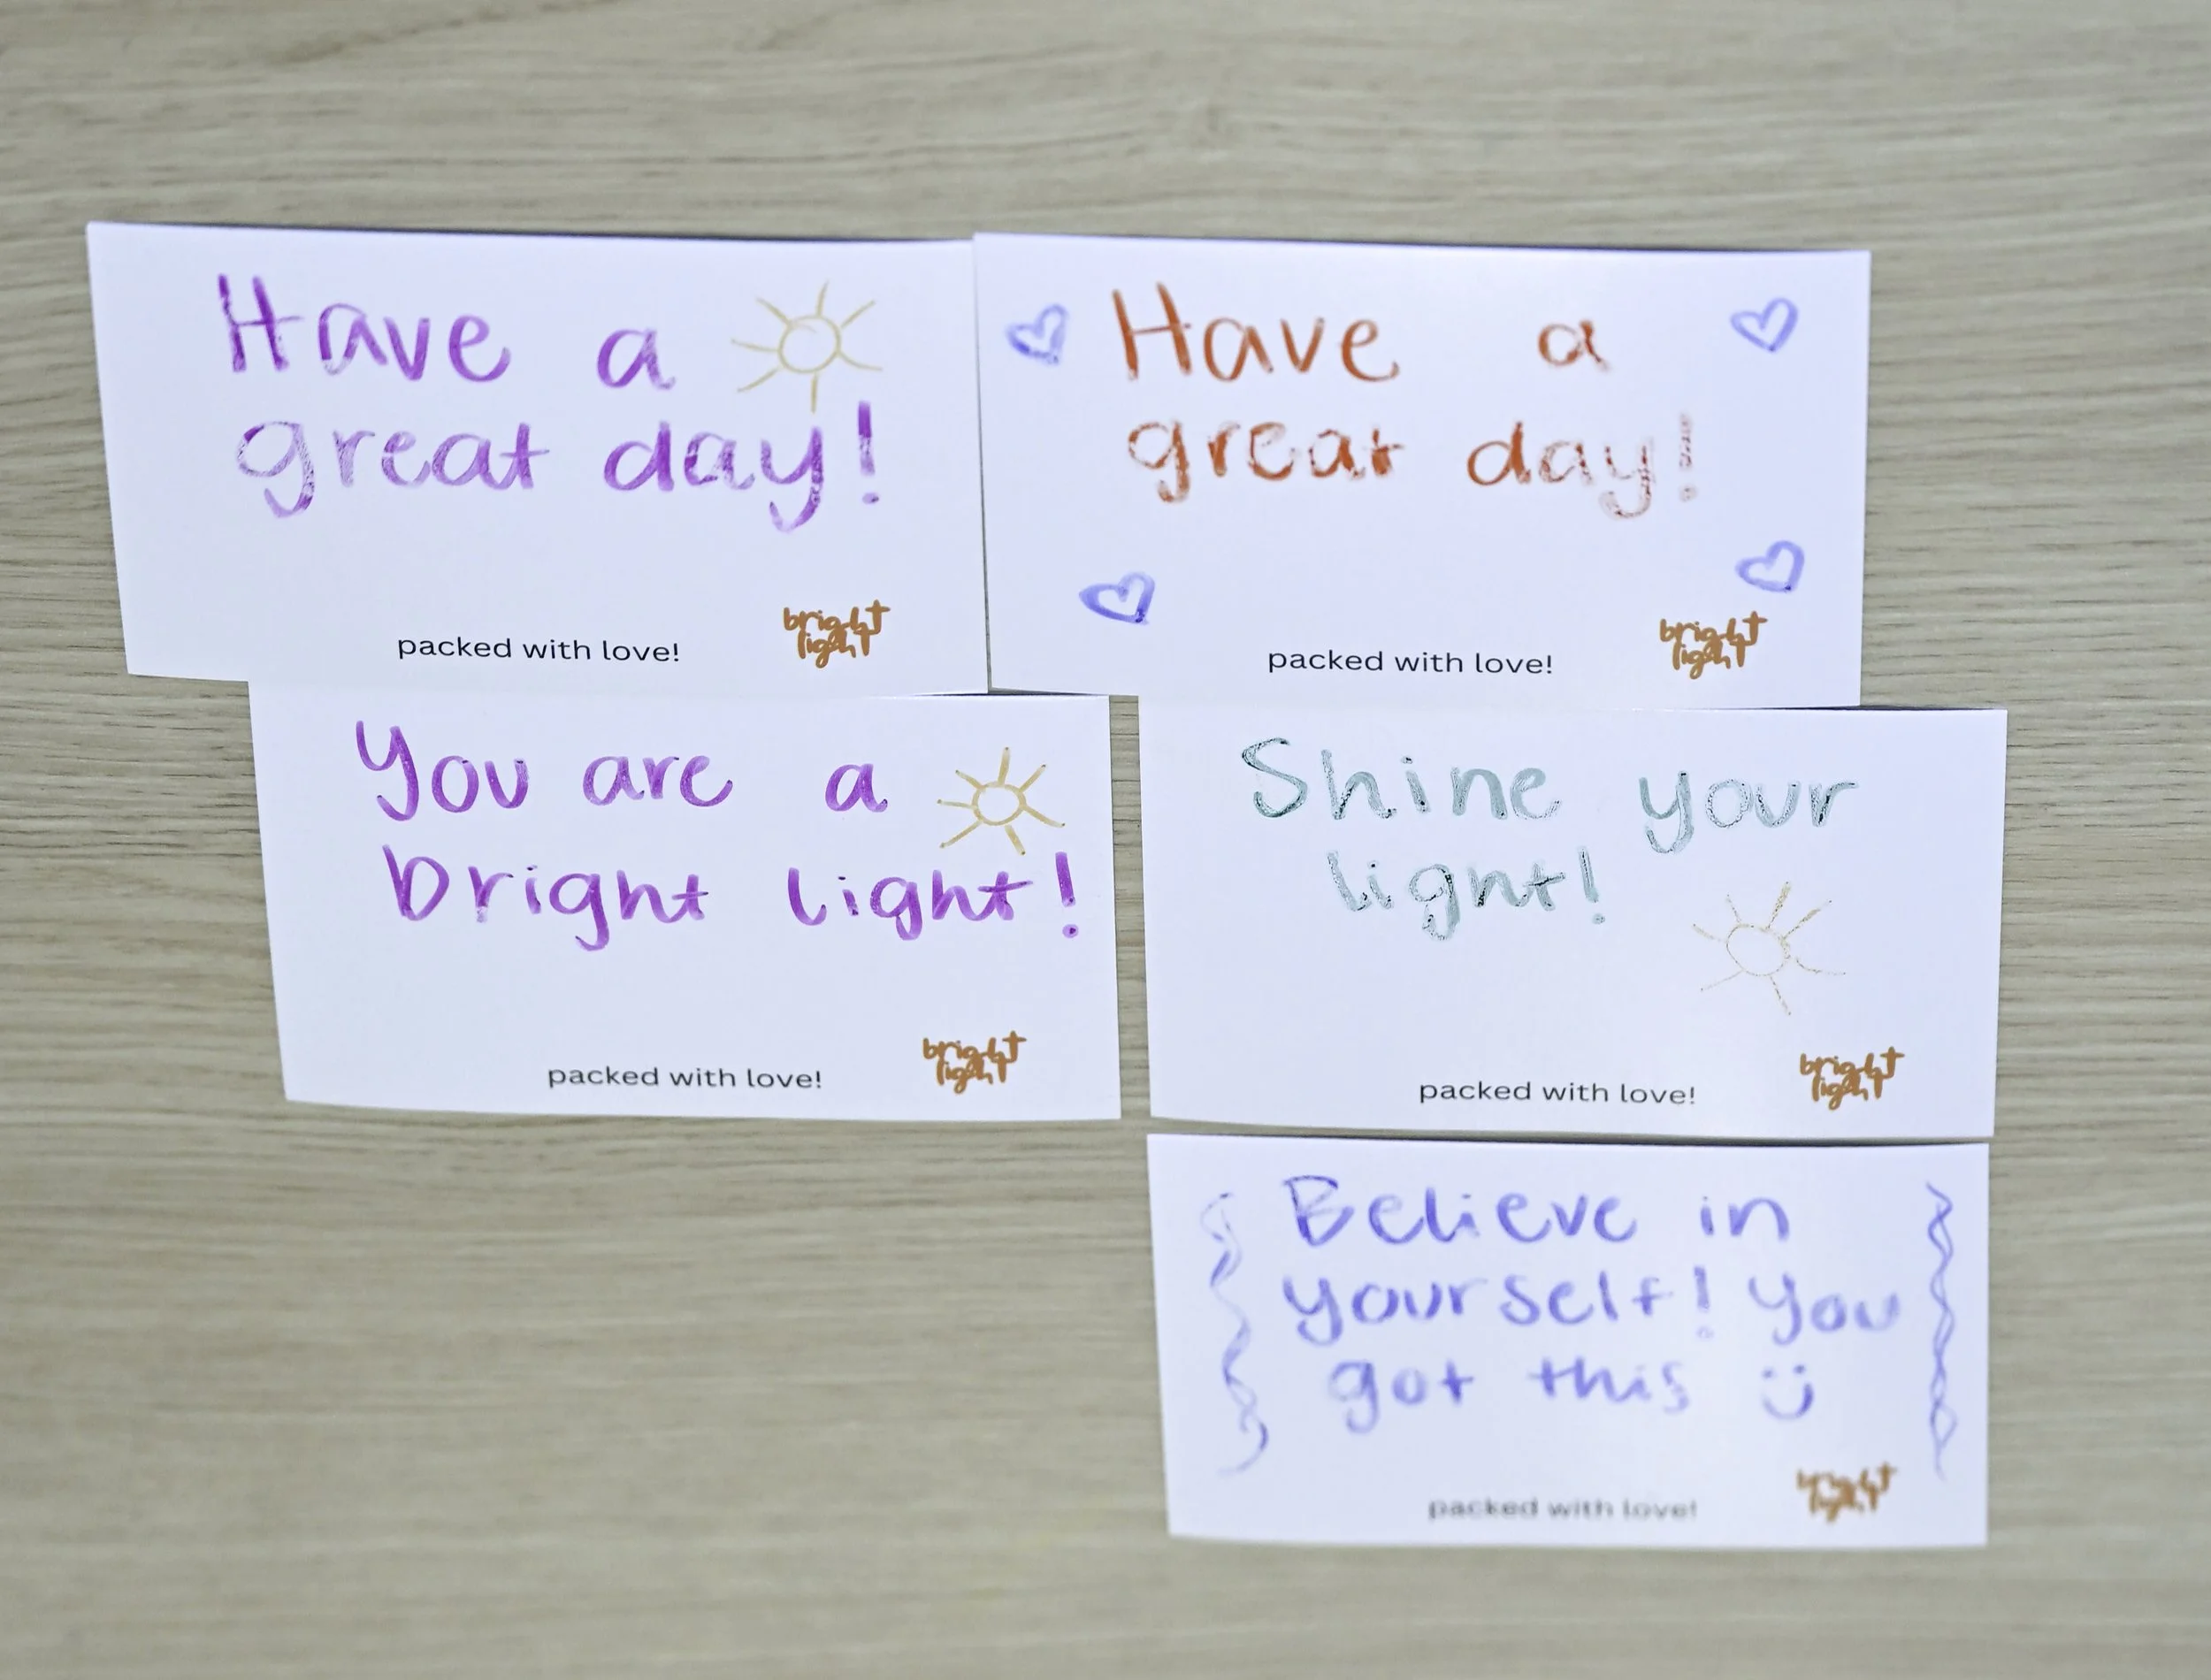 Have a
great day!
packed with love!
bright
light
Have a
great day!
packed with love!
bright
light
You are a
bright light!
packed with love!
bright
light
Shine your
light!
packed with love!
bright
light
Believe in
yourself! You
got this
packed with love!
bright
light